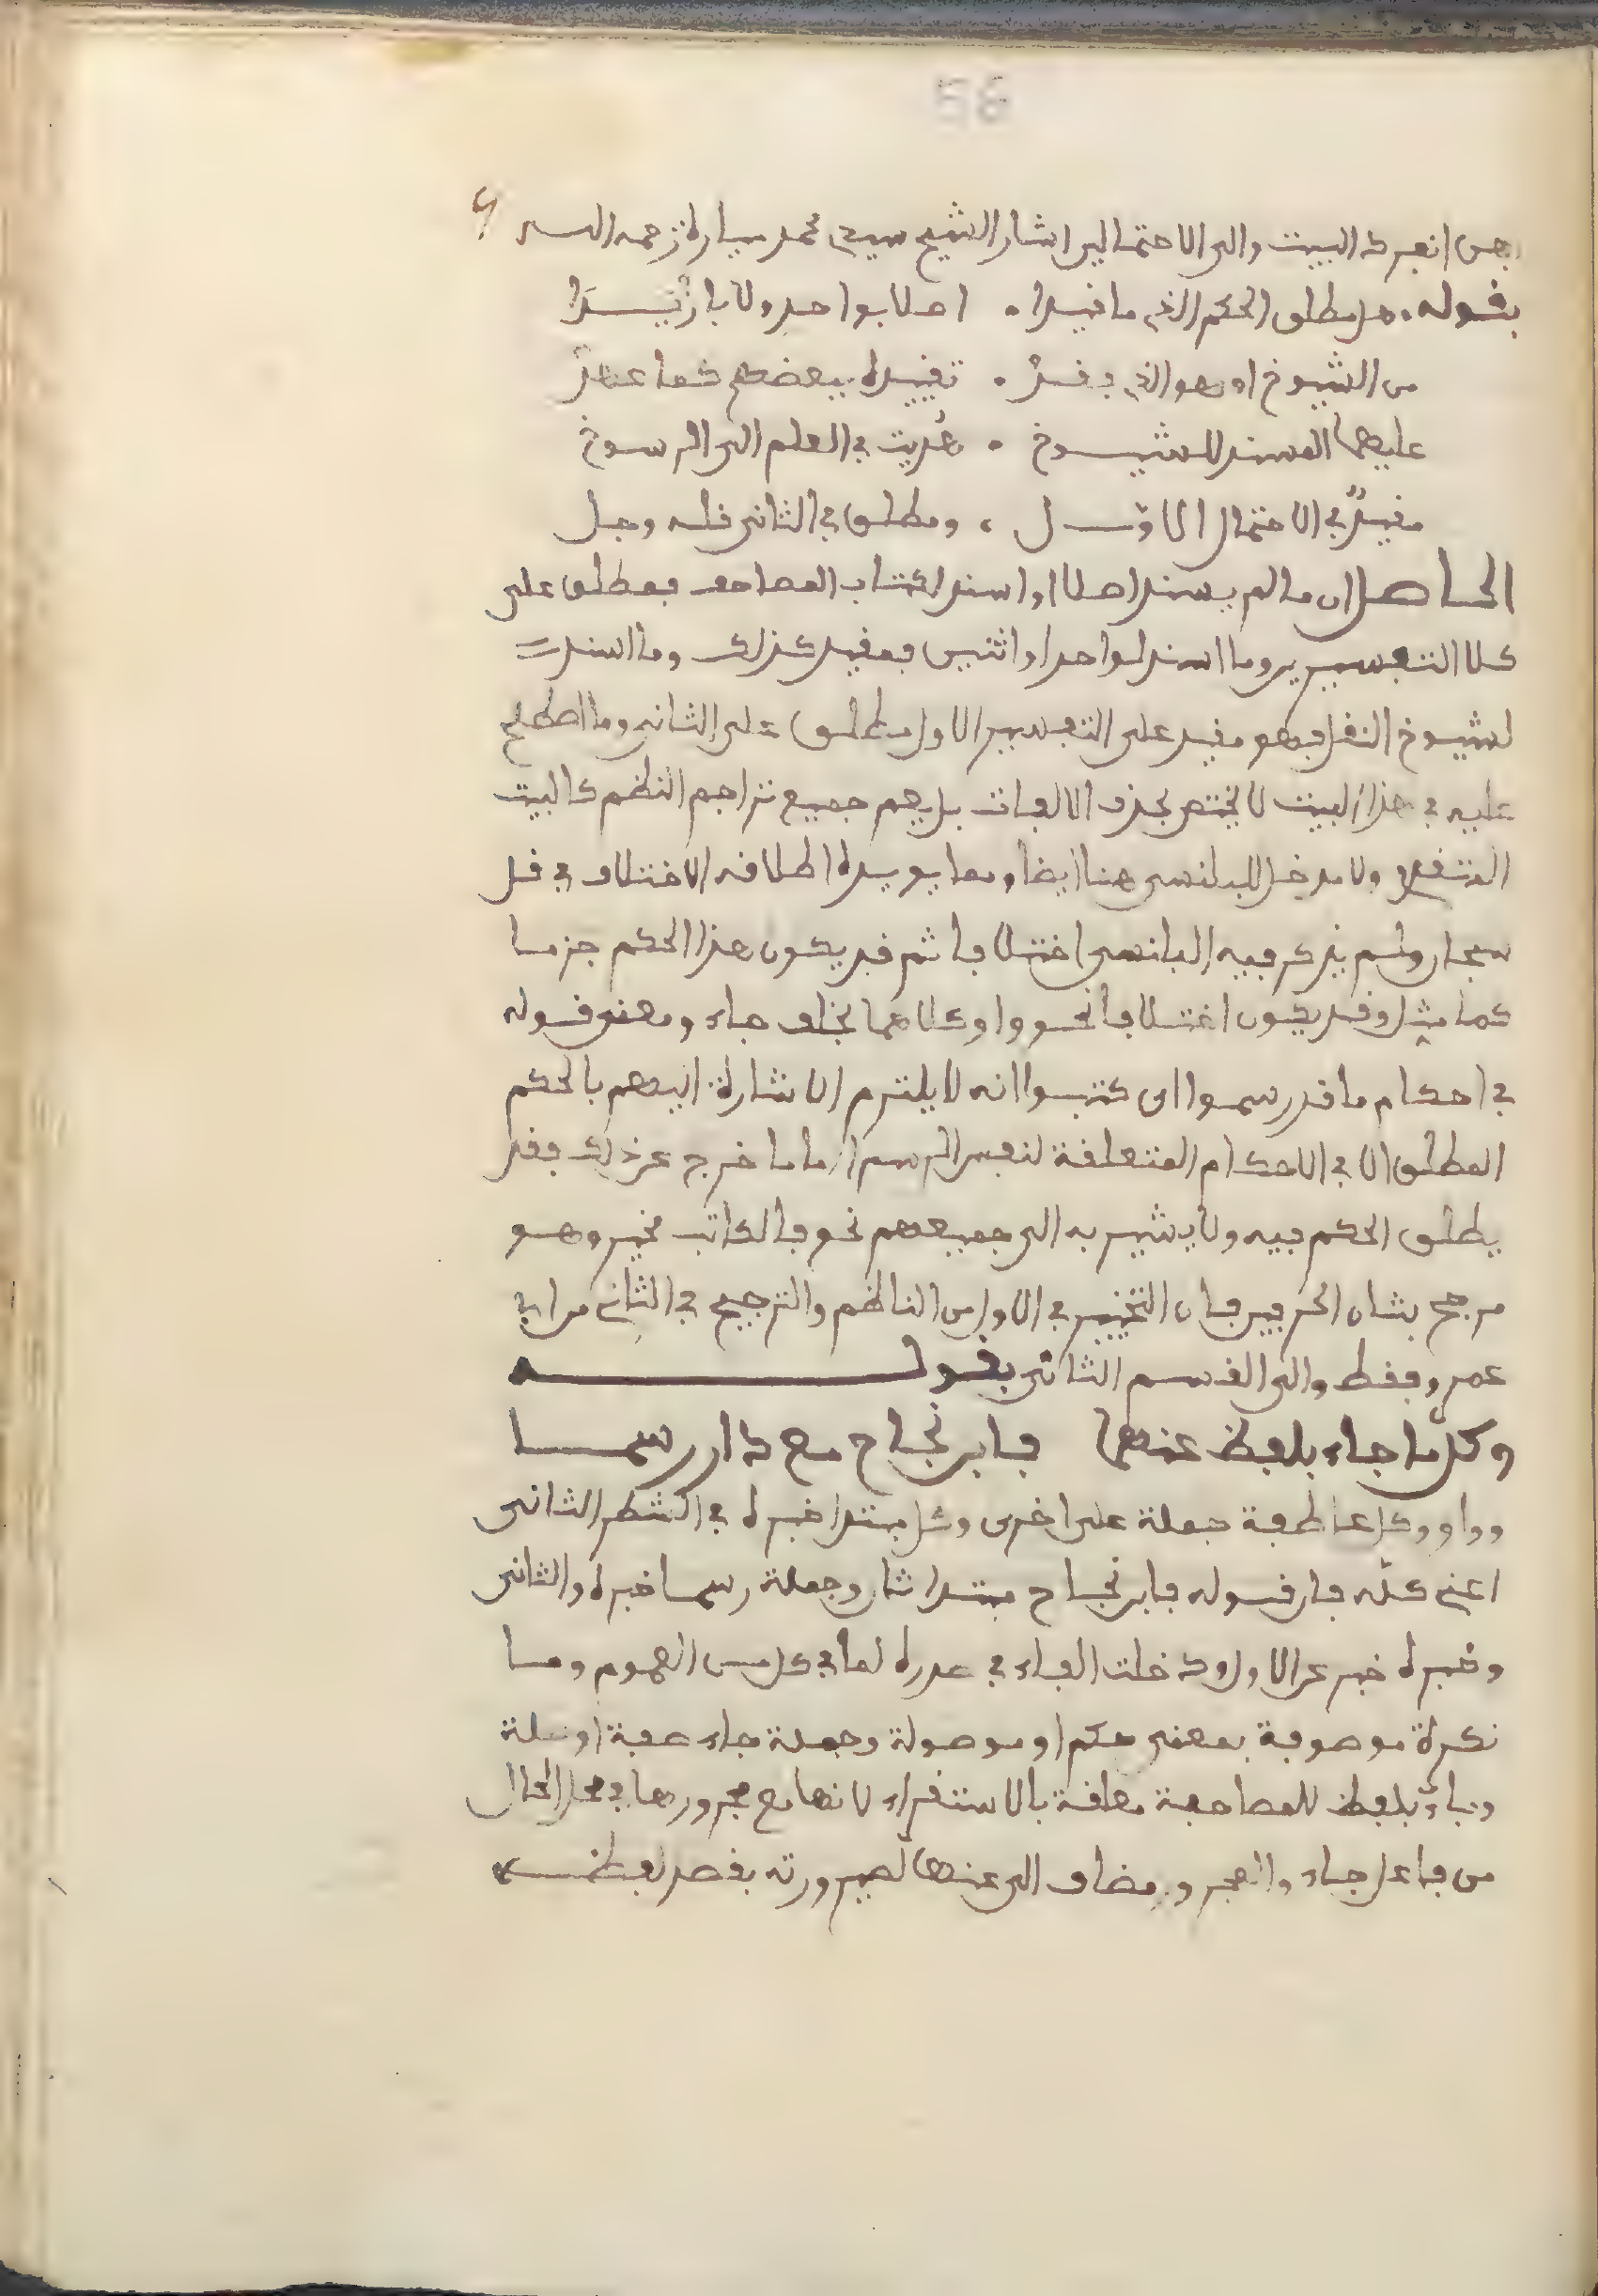 58
فمن انفرد البيت والى الاحتمالين اشار الشيخ سيدي محمد ميارة رحمه الله
بقوله. هل مطلق الحكم الذي ما قيدا . اصلا بواحد ولا بازيدا
من الشيوخ او هو الذي فقد . تقييده ببعضهم كما عهد
عليهما المسند للشيوخ . هديت في العلم الى الرسوخ
مقيد في الاحتمال الاول ، ومطلق في الثاني قله وجل
الحاصل ان ما لم يسند اصلا او اسند لكتاب المصاحف فمطلق على
كلا التفسيرين وما اسند لواحد او اثنين فمقيد كذلك وما اسند
لشيوخ النقل فهو مقيد على التفسير الاول مطلق على الثاني وما اصطلح
عليه في هذا البيت لا يختص بحذف الالفات بل يعم جميع تراجم النظم كالبيت
المتقدم ولا مدخل للبلنسي هنا ايضا ومما يويده اطلاقه الاختلاف في قل
سبحان ولم يذكر فيه البلنسي اختلافا ثم قد يكون هذا الحكم جزما
كما مثل وقد يكون اختلافا نحو واو كلاهما بخلف جاء ومعنى قوله
في احكام ما قد رسموا اي كتبوا انه لا يلتزم الاشارة اليهم بالحكم
المطلق الا في الاحكام المتعلقة لنفس الرسم اما ما خرج عن ذلك فقد
يطلق الحكم فيه ولا يشير به الى جميعهم نحو فالكاتب مخير وهو
مرجح بثان الحرفين فان التخيير في الاول من الناظم والترجيح في الثاني من ابي
عمرو فقط والى القسم الثاني بقوله
وكل ما جاء بلفظ عنهما فابن نجاح مع دان رسما
وواو وكل عاطفة جملة على اخرى وكل مبتدا خبره في الشطر الثاني
اعني كله فان قوله فابن نجاح مبتدا ثان وجملة رسما خبره والثاني
وخبره خبر عن الاول ودخلت الفاء في صدره لما في كل من العموم وما
نكرة موصوفة بمعنى حكم او موصولة وجملة جاء صفة او صلة
وباء بلفظ للمصاحبة معلقة بالاستقرار لانها مع مجرورها في محل الحال
من فاعل جاء والمجرور مضاف الى عنهما لصيرورته بقصد لفظه